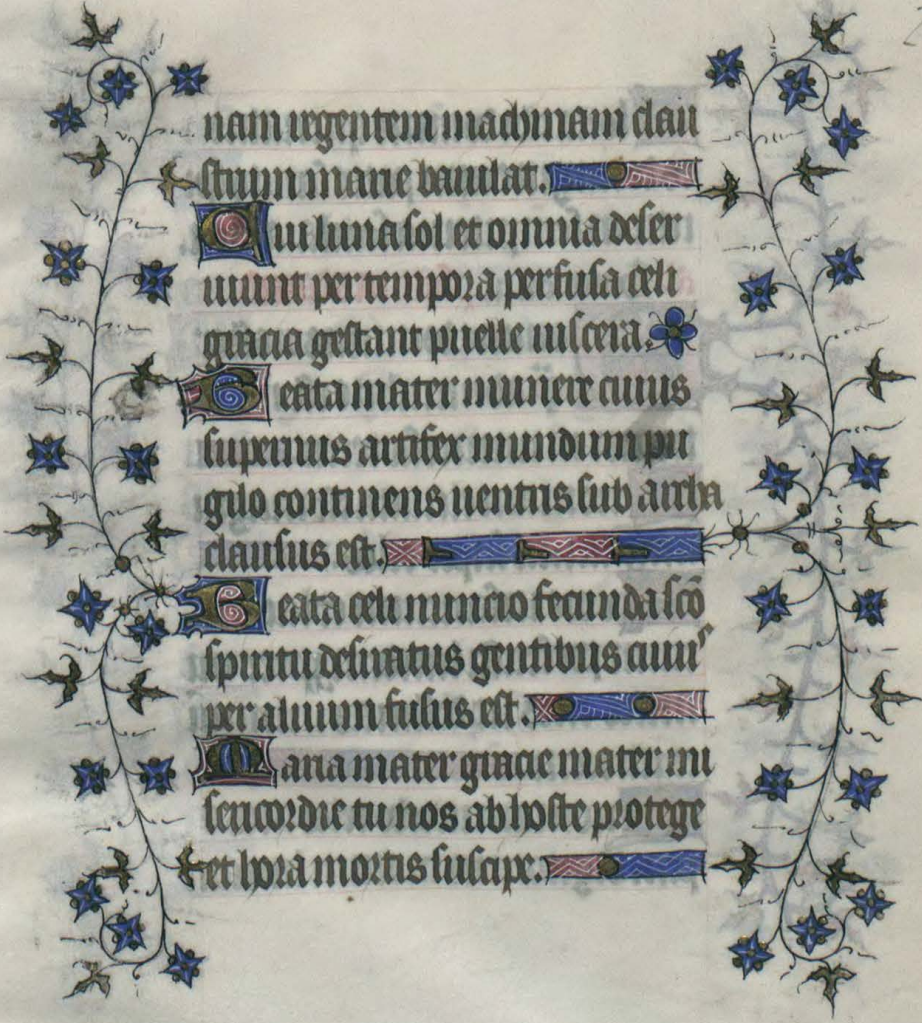 nam regentem machinam clau
strum marie baiulat.
Cui luna sol et omnia deser
uiunt per tempora perfusa celi
gracia gestant puelle uiscera.
Beata mater munere cuius
supernus artifex mundum pu
gilo continens uentris sub archa
clausus est.
Beata celi nuncio fecunda sco
spiritu desiratus gentibus cuius
per aluum fusus est.
Maria mater gracie mater mi
sericordie tu nos ab hoste protege
et hora mortis suscipe.